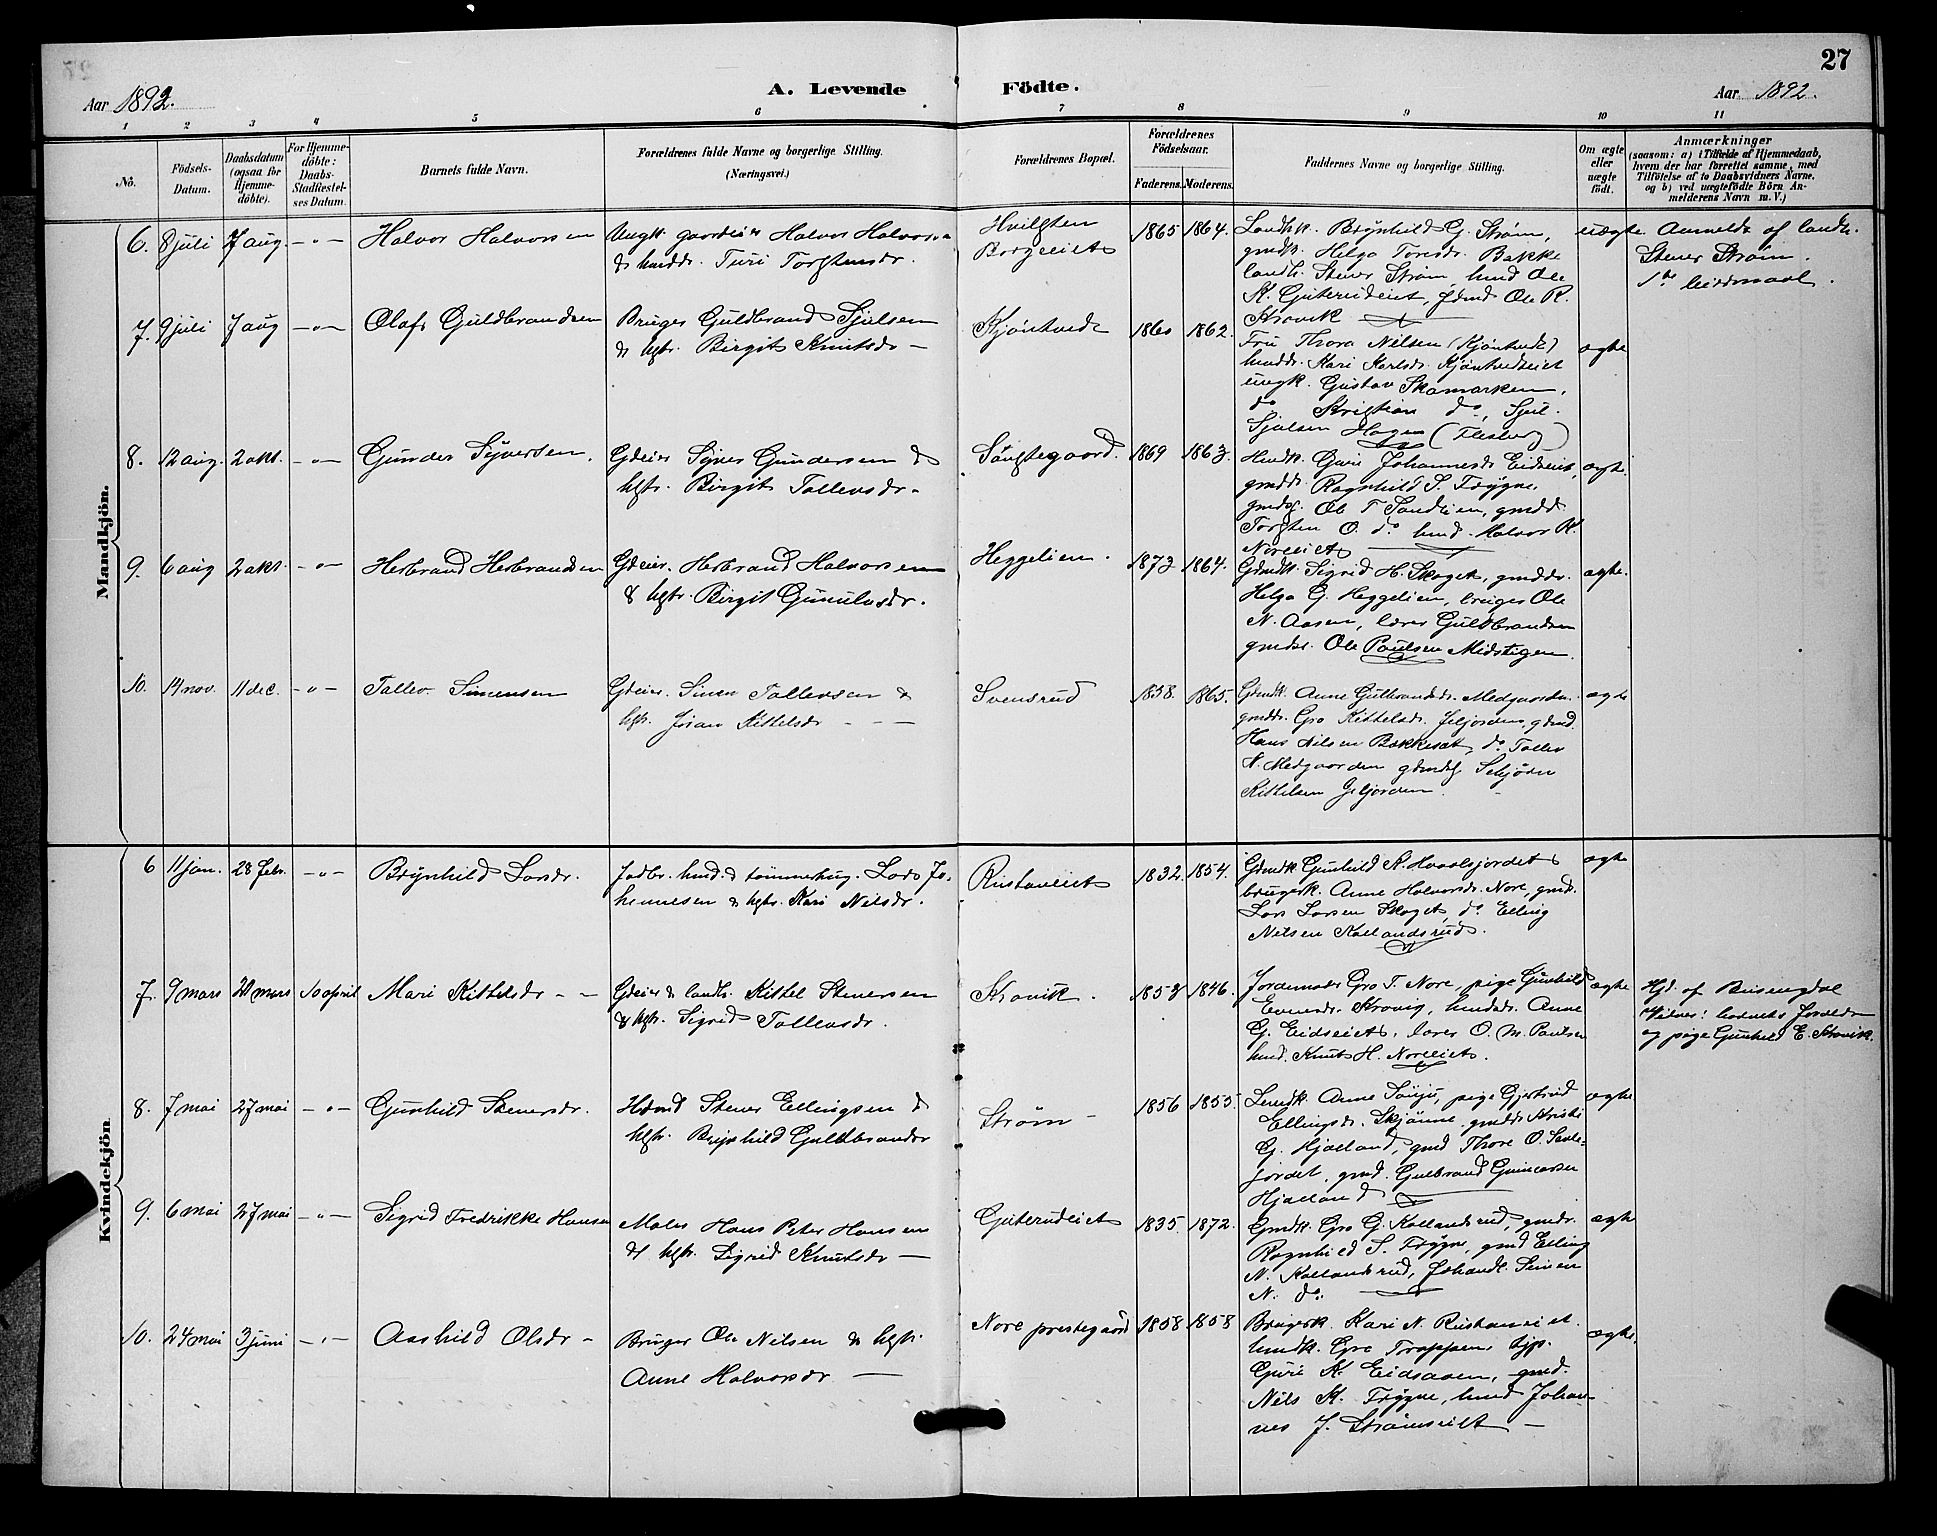 27
Aar 1892.
A. Levende Födte.
Aar 1892.
1 2 3 4 5 6 7 8 9 10 11
No.
Födsels-
Datum.
Daabsdatum
(ogsaa for
Hjemme-
döbte).
For Hjemme-
döbte:
Daabs-
Stadfæstel-
ses Datum.
Barnets fulde Navn.
Forældrenes fulde Navne og borgerlige Stilling.
(Næringsvei.)
Forældrenes Bopæl.
Forældrenes
Födselsaar.
Faderens. Moderens.
Faddernes Navne og borgerlige Stilling.
Om ægte
eller
uægte
födt.
Anmærkninger
(saasom: a) i Tilfælde af Hjemmedaab,
hvem der har forrettet samme, med
Tilföielse af to Daabsvidners Navne,
og b) ved uægtefödte Börn An-
melderens Navn m. V.)
Mandkjön.
6. 8 juli 7 aug. -"- Halvor Halvorsen
Ungk. gaardeier Halvor Halvorsen
& huusdr. Turi Torstensdr.
Borgeeiet
1865 1864.
Landhk. Brynhild G. Strøm,
gmdk. Helga Toresdr. Bakke
landh. Stener Strøm, husmd Ole
K. Guterudeiet, Ole R.
Skravik
uægte
Anmeldt af landh.
Stener Strøm.
1ste leiermaal.
7. 9 juli 7 aug -"- Olaf Guldbrandsen
Bruger Guldbrand Sjulsen
& hstr. Birgit Knutsdr -
Kjøntvedt
1860 1862.
Fru Thora Nilsen (Kjøntvedt)
husmdr. Kari Karlsdr. Kjøntvedteiet
ungk. Gustav Skamarken,
do Kristian do, Sjul
Sjulsen Hagen (Flesberg)
ægte
8. 12 aug. 2 okt. -"- Gunder Syversen.
Gdeier Syver Gundersen &
hstr. Birgit Tollevsdr.
1869 1863.
Husmk. Guri Johannesdr Eidseiet,
gmdr. Ragnhild S. Frøgne,
Ole T Sandeien, gmd
Torsten O. do husmd. Halvor K.
Noreeiet
ægte.
9. 6 aug 2 okt. -"- Herbrand Herbrandsen
Gdeier. Herbrand Halvorsen
& hstr. Birgit Gunulvsdr.
Heggelien.
1872 1864.
Gdmdk. Sigrid H. Skaget, gmddr.
Helga G. Heggelien, bruger Ole
N. Aasen, lærer Guldbrandsen
Ole Paulsen Midstigen.
ægte.
10. 14 nov. 11 dec. -"- Tollev Simensen
Gdeier. Simen Tollevsen &
hstr. Joran Kittelsdr - - -
Svensrud
1858. 1865.
Gdmdk. Anne Gulbrandsdr. Medgaarden.
gmddr. Gro Kittelsdr. Jeljorden, gdmd.
Hans Nilsen Bakkeset, do Tollev
N. Medgaarden
Kittelsen Geljorden.
ægte
Kvindekjön.
6 11 jan. 28 febr. -"- Brynhild Larsdr.
Jordbr. husmd. & tömmerhug. Lars Jo-
hannesen & hstr. Kari Nilsdr.
Rustaneiet
1832. 1854.
Gdmdk Gunhild K. Hvaalsjordet
brugerk. Anne Halvorsdr. Nore, gmd.
Lars Larsen Skaget, do Elling
Nilsen Kallandsrud.
ægte
7. 9 mars 20 mars 10 april Mari Kittelsdr - -
Gdeier & landh. Kittel Stenersen
& hstr. Sigrid Tollevsdr.
Skravik.
1853 1846.
Jordemoder Gro T. Nore, pige Gunhild
Evensdr. Skravig, husmdr. Anne
G. Eidseiet, lærer O. M. Paulsen
husmd. Knut H. Noreeiet.
ægte
Hjd. af
Vidner: barnets Forældre
og pige Gunhild E. Skravik.
8. 7 mai 27 mai -"- Gunhild Stenersdr.
Stener Ellingsen &
hstr. Brynhild Guldbrandsdr
Strøm -
1856 1855.
Anne pige Gjertrud
Ellingsdr. Skjønne, gmddr. Kristi
G. Hjalland, gmd Thore O. Sevle-
jordet, gmd. Gulbrand Gunnarsen
Hjalland
ægte
9. 6 mai 27 mai -"- Sigrid Fredrikke Hansen
Maler Hans Peter Hansen
& hstr. Sigrid Knutsdr -
Guterudeiet
1835. 1872.
Gmdk. Gro G. Kallandsrud, gmdr.
Ragnhild S. Frøgne, gmd Elling
N. Kallandsrud, Simen
N. do.
ægte
10. 24 mai 3 juni -"- Aashild Olsdr -
Bruger Ole Nilsen & hstr.
Anne Halvorsdr -
Nore prestegaard
1858 1858
Brugerk. Kari N. Rustaneiet.
husmdk. Gro Trappen, tjp.
Guri K. Eidsaaen, gmd.
Nils K. Frøgne, husmd Johan-
nes J. Strømseiet -
ægte.